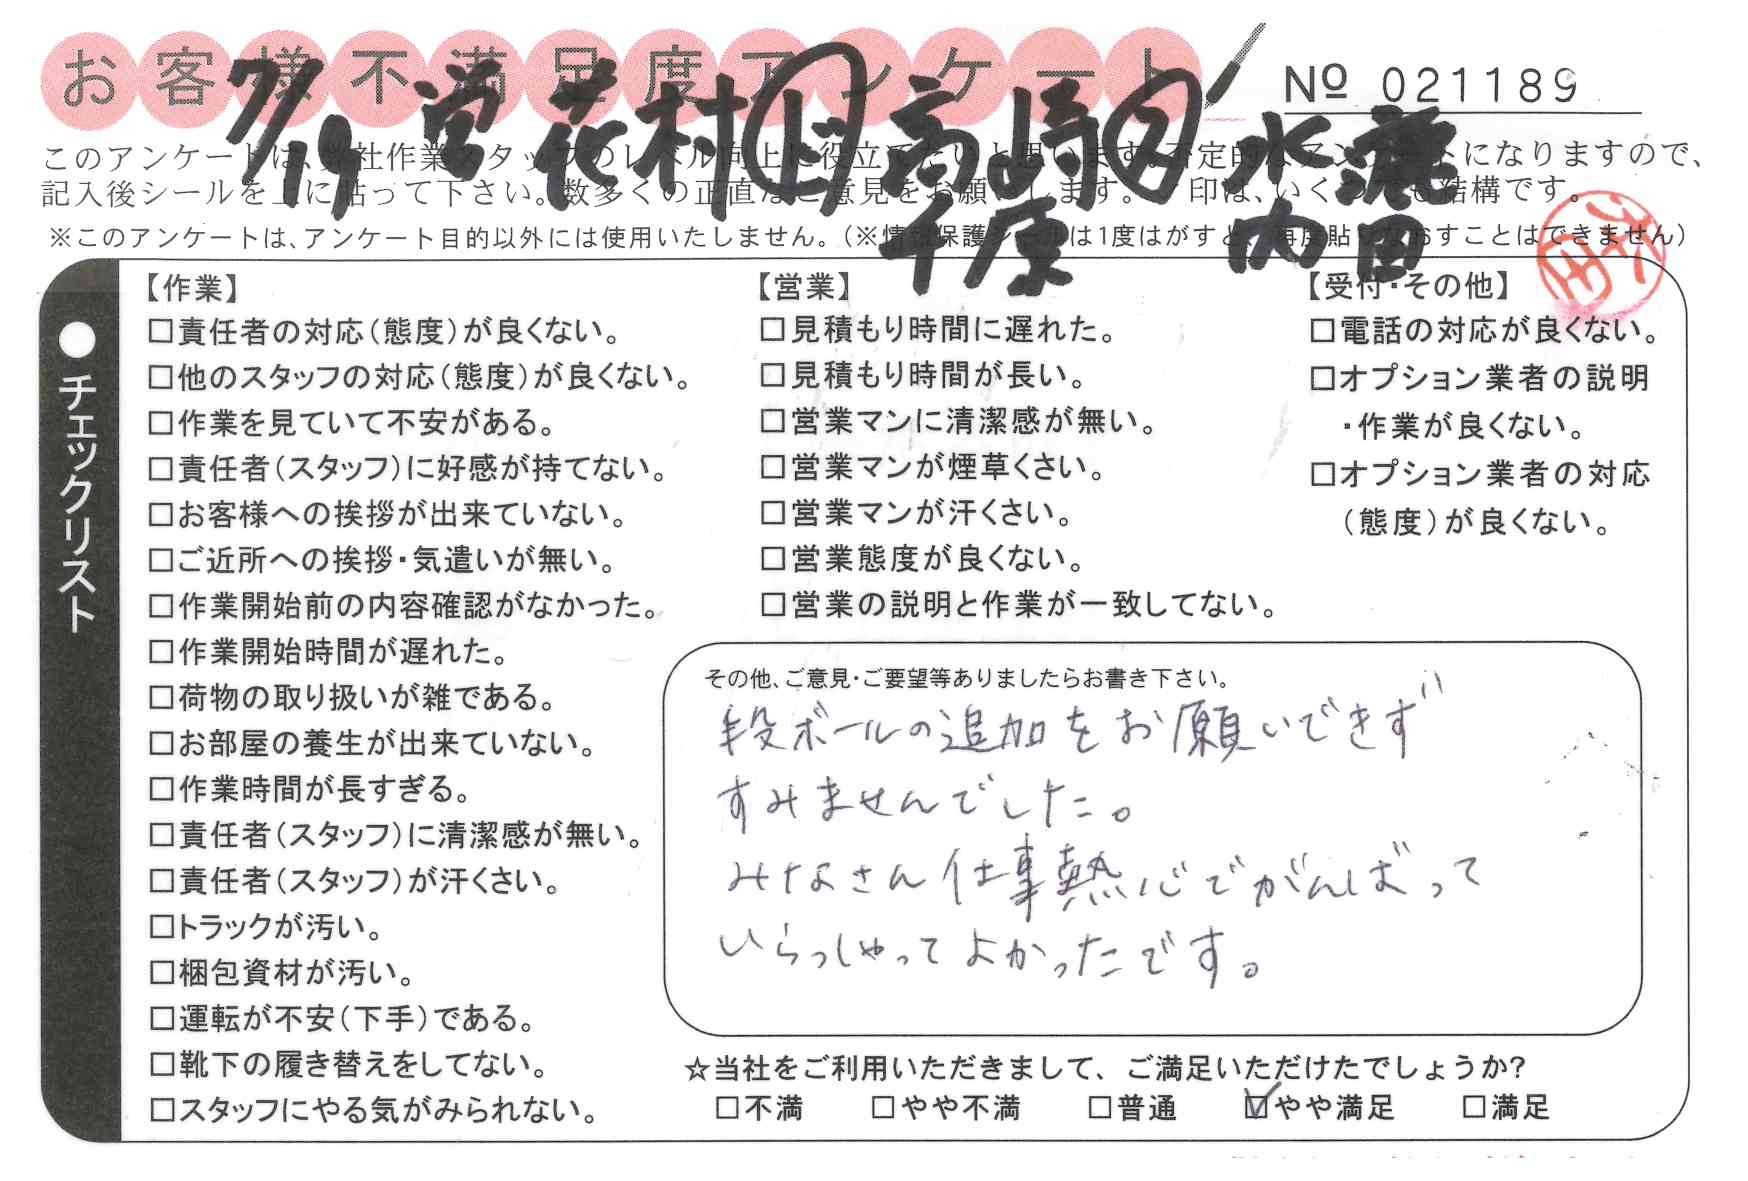 お客様不満足度アンケート
№ 021189
7/19 営 花村 上 高崎 千原 水 内田
このアンケートは、弊社作業スタッフのレベル向上に役立てたいと思います。否定的なアンケートになりますので、
記入後シールを上に貼って下さい。数多くの正直なご意見をお願いします。✓印は、いくつでも結構です。
※このアンケートは、アンケート目的以外には使用いたしません。(※情報保護シールは1度はがすと、再度貼りなおすことはできません)
●チェックリスト
【作業】
□責任者の対応(態度)が良くない。
□他のスタッフの対応(態度)が良くない。
□作業を見ていて不安がある。
□責任者(スタッフ)に好感が持てない。
□お客様への挨拶が出来ていない。
□ご近所への挨拶・気遣いが無い。
□作業開始前の内容確認がなかった。
□作業開始時間が遅れた。
□荷物の取り扱いが雑である。
□お部屋の養生が出来ていない。
□作業時間が長すぎる。
□責任者(スタッフ)に清潔感が無い。
□責任者(スタッフ)が汗くさい。
□トラックが汚い。
□梱包資材が汚い。
□運転が不安(下手)である。
□靴下の履き替えをしてない。
□スタッフにやる気がみられない。
【営業】
□見積もり時間に遅れた。
□見積もり時間が長い。
□営業マンに清潔感が無い。
□営業マンが煙草くさい。
□営業マンが汗くさい。
□営業態度が良くない。
□営業の説明と作業が一致してない。
【受付・その他】
□電話の対応が良くない。
□オプション業者の説明
・作業が良くない。
□オプション業者の対応
(態度)が良くない。
その他、ご意見・ご要望等ありましたらお書き下さい。
段ボールの追加をお願いできず
すみませんでした。
みなさん仕事熱心でがんばって
いらっしゃってよかったです。
☆当社をご利用いただきまして、ご満足いただけたでしょうか?
□不満 □やや不満 □普通 ☑やや満足 □満足